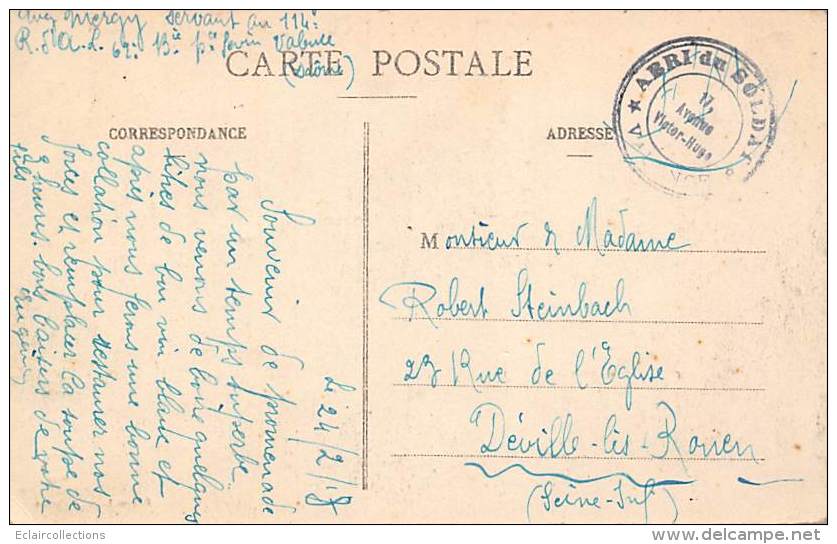 servant au 114e
R. d'A. L. 62e Bie
CARTE POSTALE
(Drôme)
★ ABRI du SOLDAT
17
Avenue
Victor-Hugo
CORRESPONDANCE
ADRESSE
Le 24/2/18
Souvenir de promenade
par un temps superbe
nous venons de boire quelques
litres de bon vin blanc et
après nous ferons une bonne
collation pour restaurer nos
forces et remplacer la soupe de
heures. bons baisers de votre
fils Eugène
Monsieur & Madame
Robert Steinbach
23 Rue de l'Eglise
Déville-lès-Rouen
(Seine-Inf)
Eclaircollections